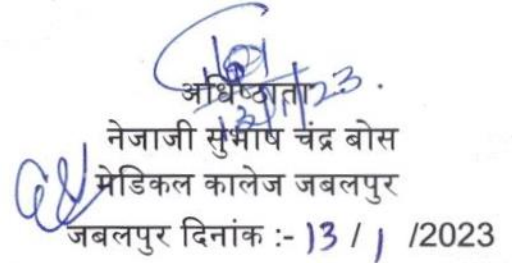 अधिष्ठाता
13/1/23
नेजाजी सुभाष चंद्र बोस
मेडिकल कालेज जबलपुर
जबलपुर दिनांक :- 13 / 1 /2023